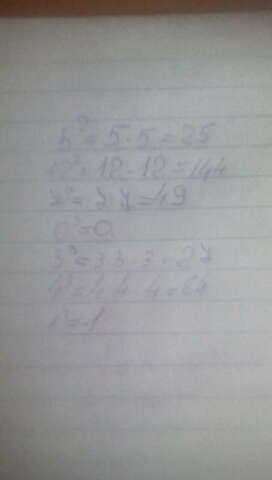 5² = 5 · 5 = 25
12² = 12 · 12 = 144
7² = 7 · 7 = 49
0² = 0
3³ = 3 3 · 3 = 27
4³ = 4 4 · 4 = 64
= 1